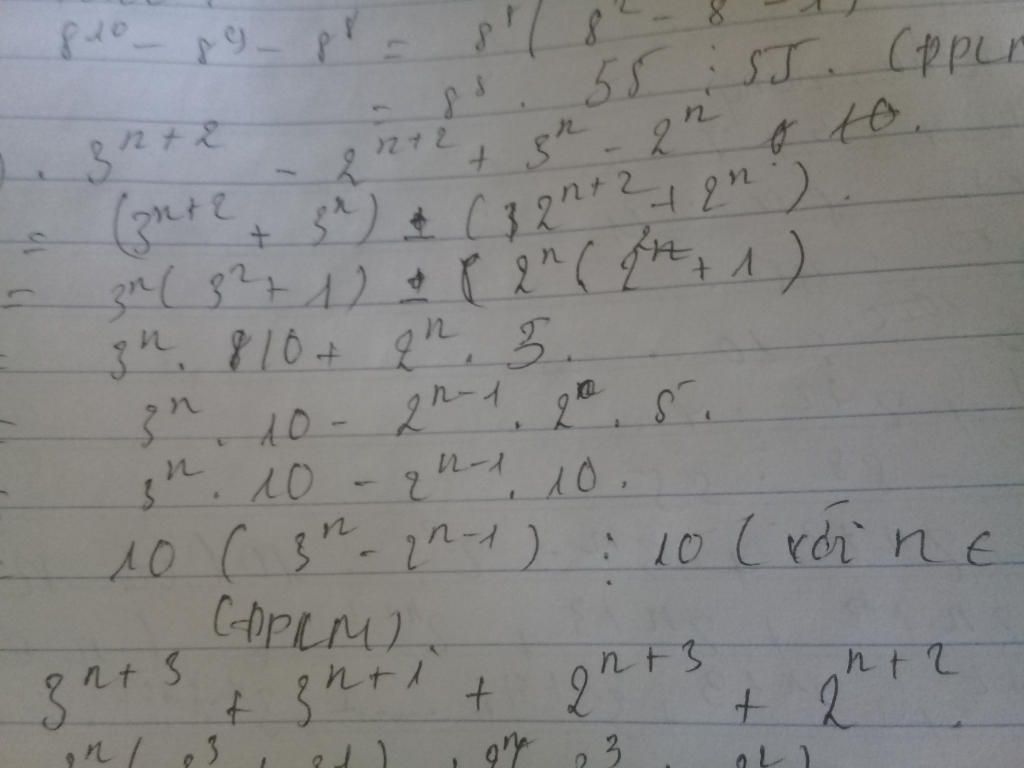 8^10 - 8^9 - 8^8 = 8^8 ( 8^2 - 8 - 1 )
= 8^8 . 55 ⋮ 55. (đpcm
) . 3^{n+2} - 2^{n+2} + 3^n - 2^n ⋮ 10.
= (3^{n+2} + 3^n) ± (2^{n+2} + 2^n) .
= 3^n ( 3^2 + 1 ) ± ( 2^n ( 2^2 + 1 )
= 3^n . 10 + 2^n . 5 .
= 3^n . 10 - 2^{n-1} . 2 . 5 .
= 3^n . 10 - 2^{n-1} . 10 .
= 10 ( 3^n - 2^{n-1} ) ⋮ 10 ( với n ∈
(đpcm) .
3^{n+3} + 3^{n+1} + 2^{n+3} + 2^{n+2} .